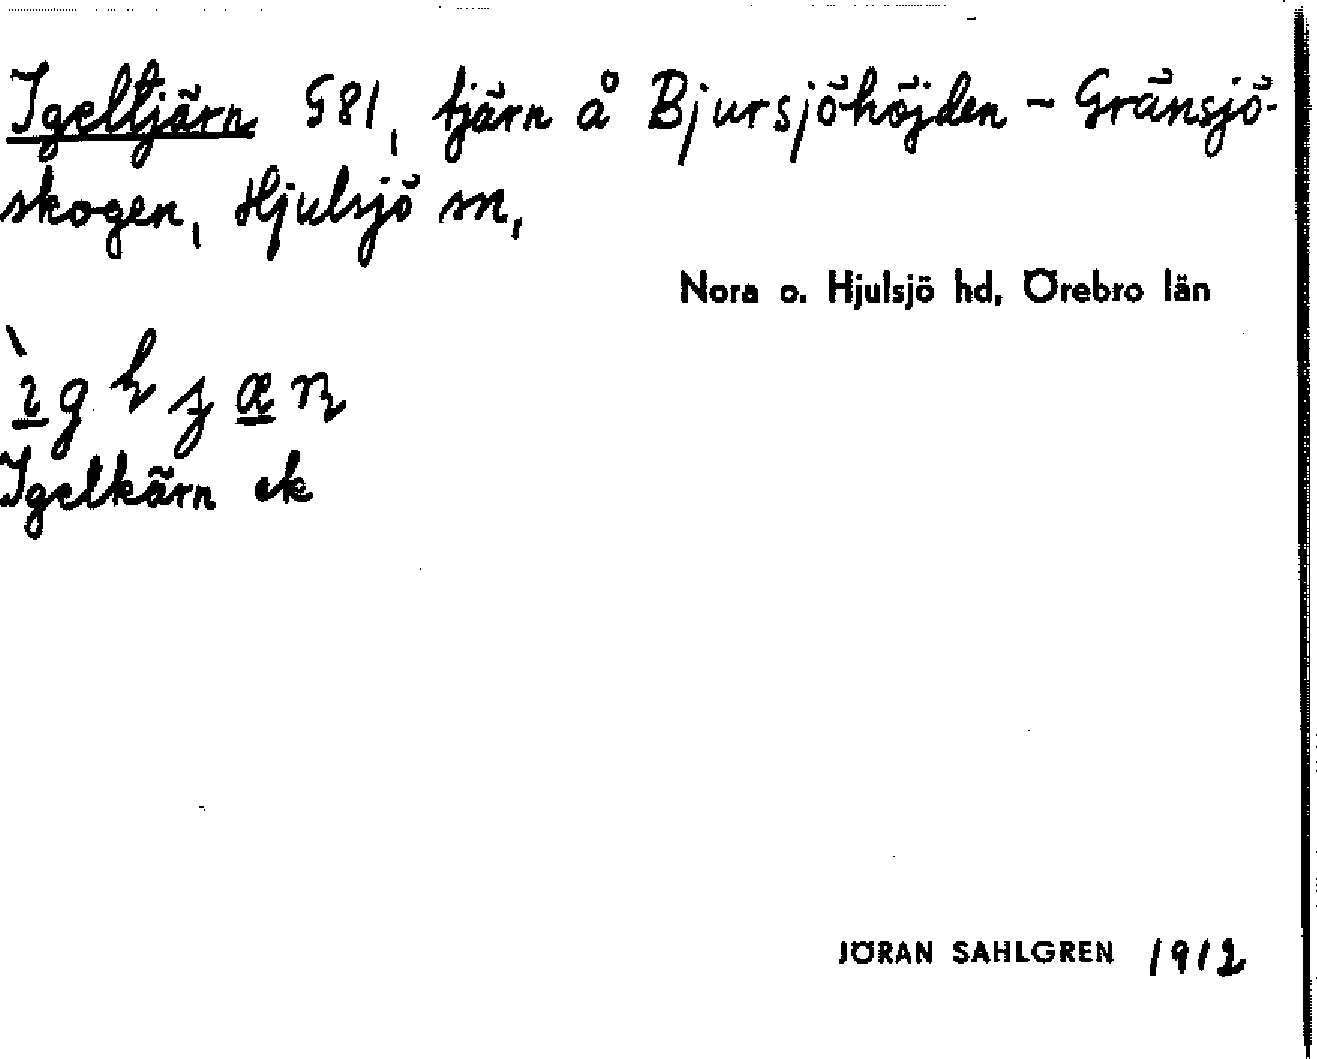 Igeltjärn 581, tjärn å Bjursjöhöjden - Gränsjö-
skogen, Hjulsjö sn,
Nora o. Hjulsjö hd, Örebro län
Igelkärn ek
JÖRAN SAHLGREN 1912